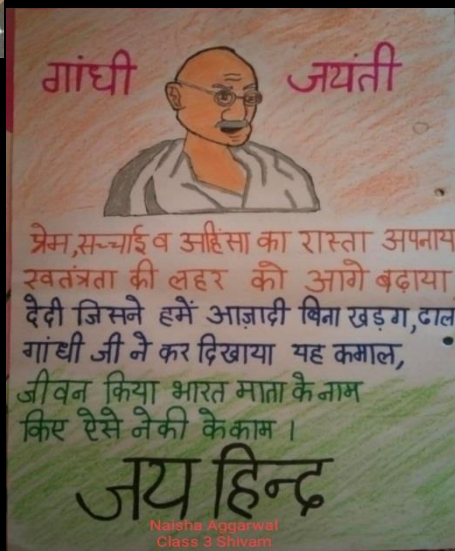 गांधी जयंती
प्रेम,सच्चाई व अहिंसा का रास्ता अपनाय
स्वतंत्रता की लहर को आगे बढ़ाया
देदी जिसने हमें आज़ादी बिना खड़ग,ढाल
गांधी जी ने कर दिखाया यह कमाल,
जीवन किया भारत माता के नाम
किए ऐसे नेकी के काम ।
जय हिन्द
Naisha Aggarwal
Class 3 Shivam